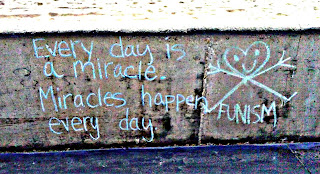 Every day is
a miracle.
Miracles happen
every day.
FUNISM